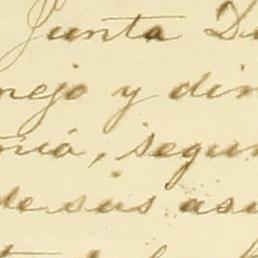 Junta Di
nejo y dir
mia, segun
de sus asu